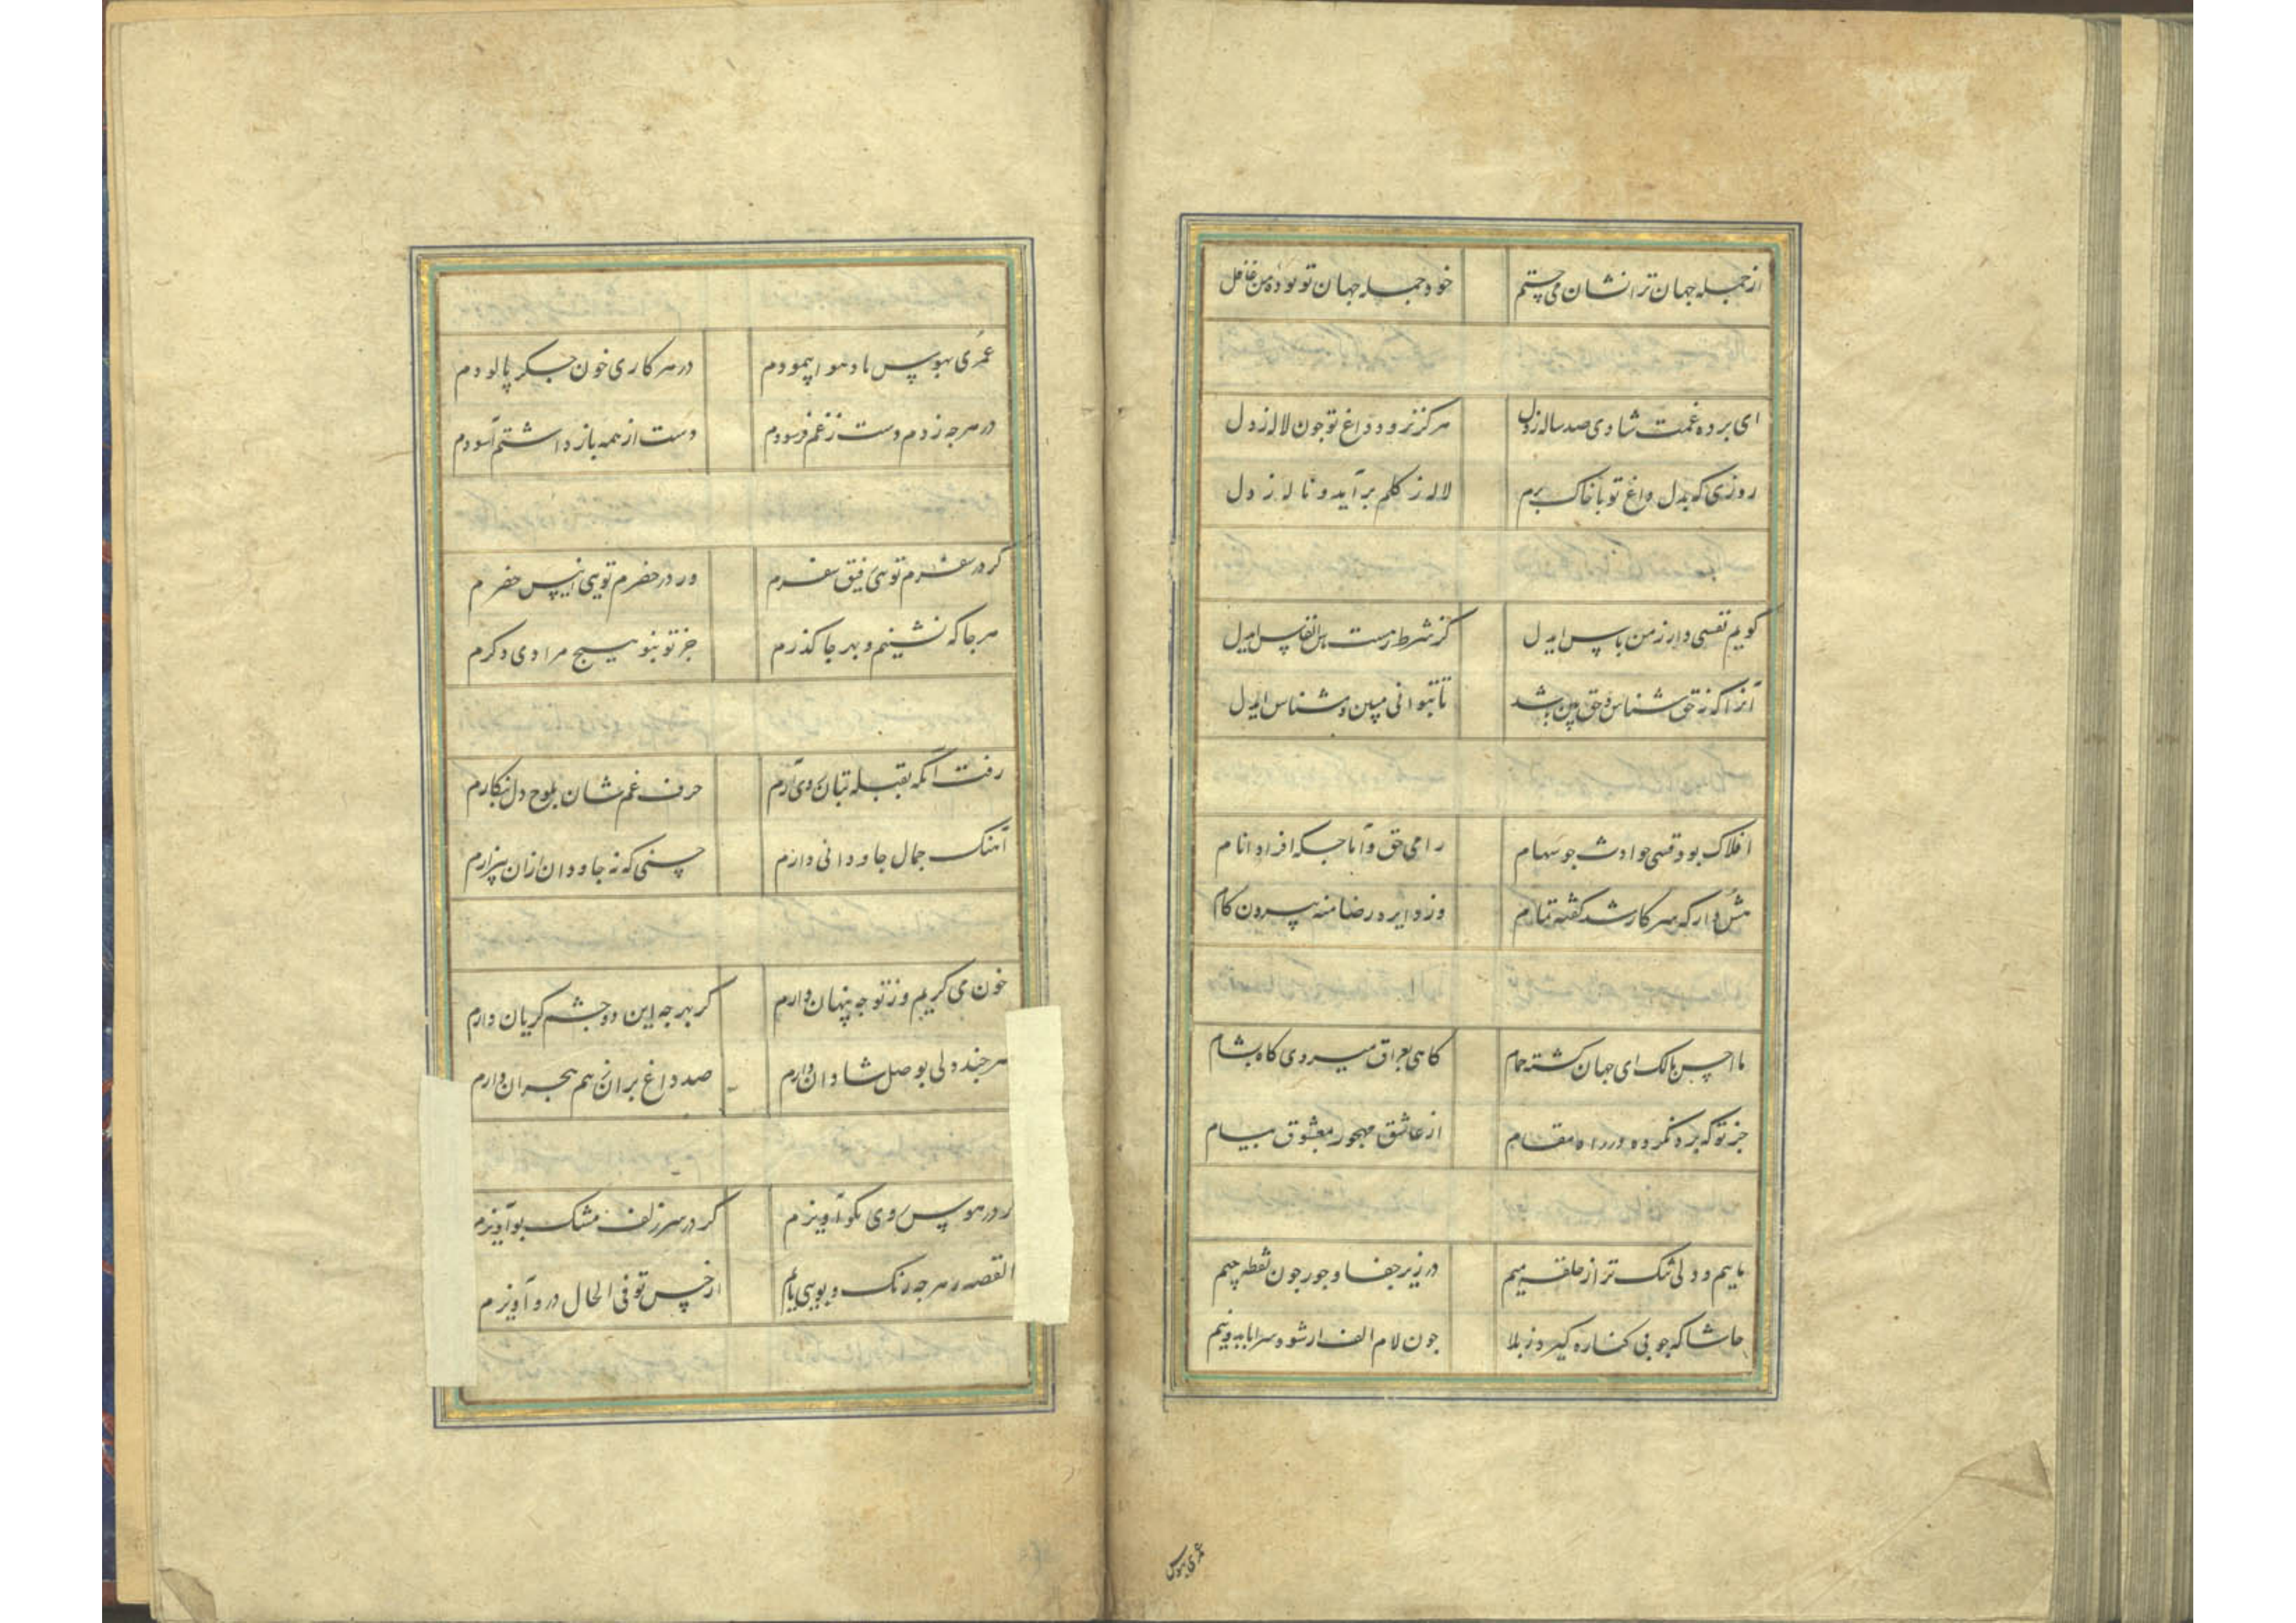 از جمله جهان ترا نشان می جستم
خود جمله جهان تو بوده من غافل
ای برده غمت شادی صد ساله ز دل
هرگز نرود داغ تو جون لاله ز دل
روزی که بدل داغ تو با خاک برم
لاله ز گلم برآید و ناله ز دل
گویم نفسی دار ز من پاس ایدل
کز شرط رهست پاس انفاس ایدل
آنرا که نه حق شناس و حق بین باشد
تا بتوانی مبین و مشناس ایدل
افلاک بود قسی حوادث جو سهام
رامی حق و آماجکه افراد انام
هش دار که سر کار شد گفته تمام
وز دایره رضا منه بیرون کام
ما احسن حالک ای جهان کشته حمام
کاهی بعراق میروی کاه بشام
جز تو که برد نکرده در راه مقام
از عاشق مهجور بمعشوق پیام
ماییم و دلی تنک تر از حلقه میم
در زیر جفا و جور جون نقطه جیم
حاشا که جو بی کناره کیرد ز بلا
جون لام الف ار شود سراپا بدو نیم
عمری بهوس
عمری بهوس باد هوا پیمودم
در هر کاری خون جکر پالودم
در هر جه زدم دست ز غم فرسودم
دست از همه باز داشتم آسودم
کر در سفرم تویی رفیق سفرم
ور در حضرم تویی انیس حضرم
هر جا که نشینم و بهر جا کذرم
جز تو نبود هیج مرادی دکرم
رفت آنکه بقبله بتان روی آرم
حرف غمشان بلوح دل بنکارم
آهنک جمال جاودانی دارم
حسنی که نه جاودان ازان بیزارم
خون می کریم وز تو جه پنهان دارم
کز بهر جه این دو جشم کریان دارم
هر جند دلی بوصل شادان دارم
صد داغ بران ز بیم هجران دارم
کر در هوس روی نکو آویزم
کر در سر زلف مشک بو آویزم
القصه ز هر جه رنک و بویی یابم
از حسن تو فی الحال درو آویزم